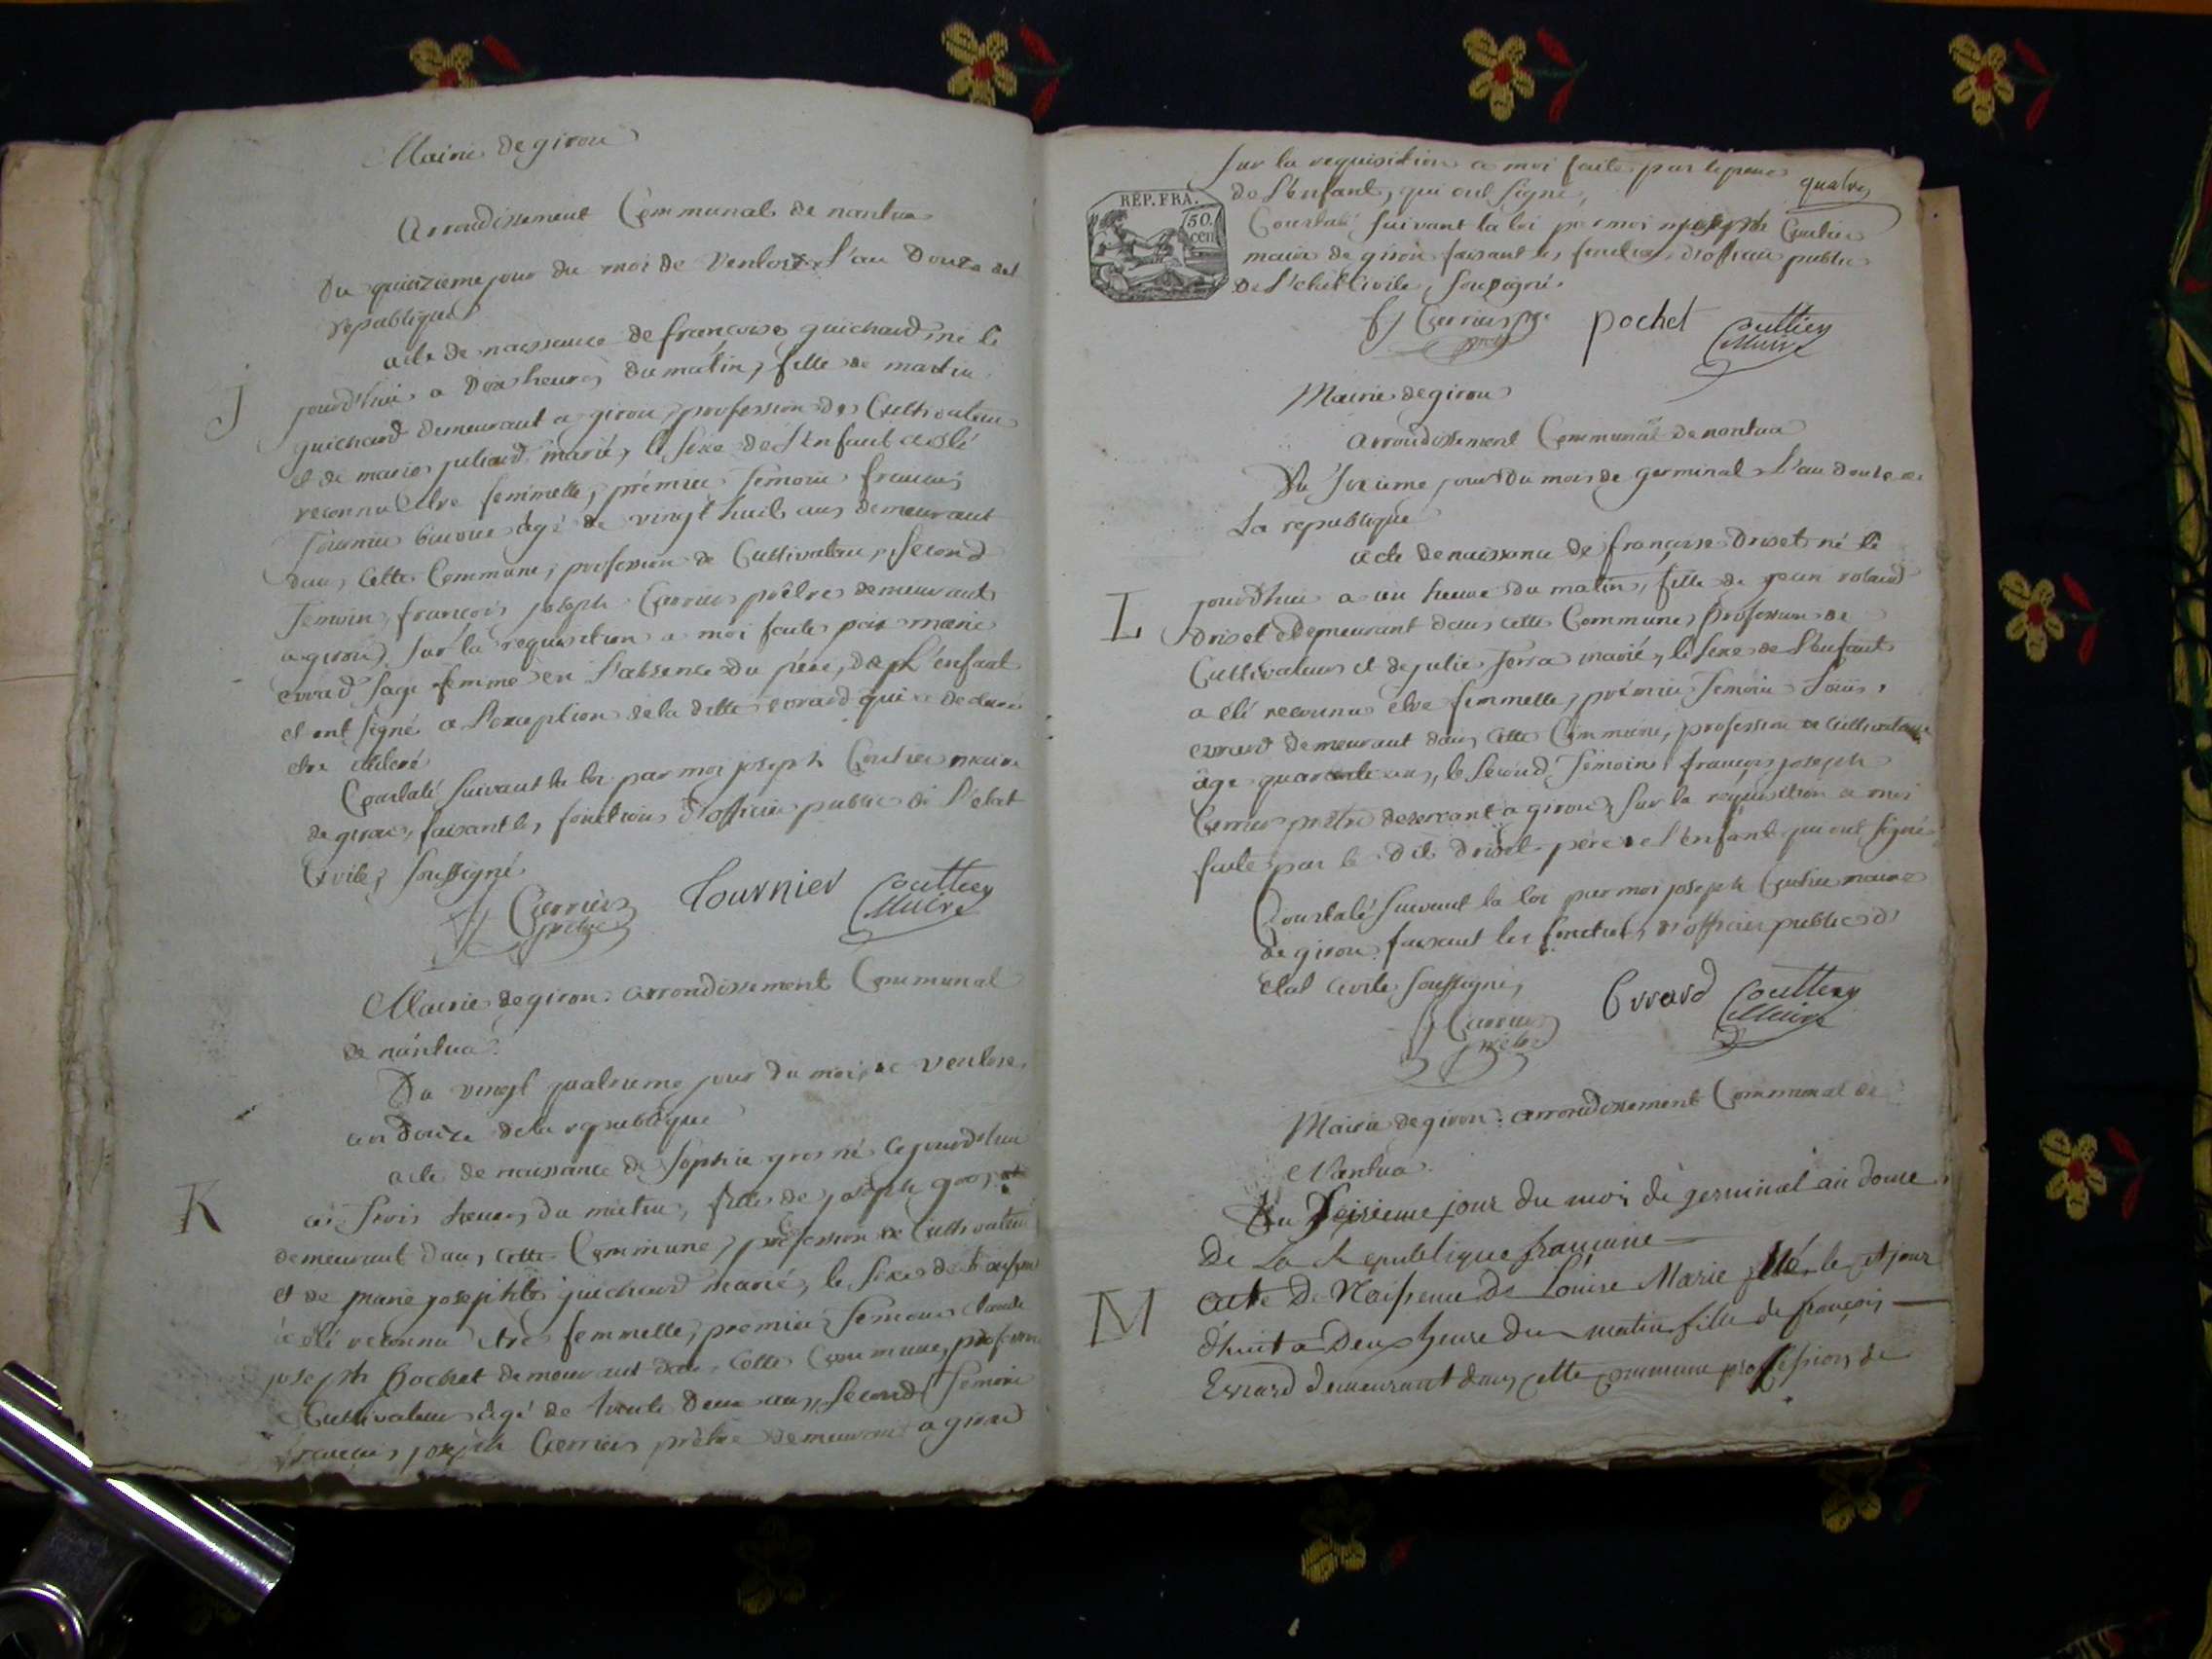 Mairie de giron
Arrondissement Communal de nantua
Du quinzieme jour du moi de Ventose, l'an Douze de la
republique
acte de naissance de françoise guichard né le
J
jourd'hui a dix heures du matin, fille de martin
guichard demeurant a giron, profession de Cultivateur
et de marie juliard marié, le sexe de l'Enfant a été
reconnu Etre femmelle, prémier Temoin françois
Tournier âgé de vingt huit ans demeurant
dans Cette Commune, profession de Cultivateur, second
Temoin, françois joseph Gerrier prêtre demeurant
a giron, sur la requisition a moi faite par marie
evrard sage femme en l'absence du père, de l'enfant
et ont signé a l'exception de la ditte evrard qui a declaré
etre
Constaté suivant la loi par moi joseph Coutier maire
de giron, faisant les fonctions d'officier public de l'etat
Civile, soussigné
fj Gerrier Tournier Couttier
prêtre Maire
Mairie de giron: arrondissement Communal
de nántua.
Du vingt quatrieme jour du moi de ventose,
an douze de la republique
acte de naissance de Sophie gros né Cejourd'hui
K
a Trois heures du matin, fille de joseph gros
demeurant dans cette Commune, profession de Cultivateur
et de marie josephte guichard marié, le sexe de l'enfant
a été reconnu etre femmelle, premier Temoin Claude
joseph pochet demeurant dans Cette Commune, profession
Cultivateur âgé de trente deux ans, second Temoin
françois joseph Gerrier prêtre demeurant a giron
sur la requisition a moi faite par le père
quatre
de l'Enfant, qui ont signé,
RÉP. FRA.
50.
cen
Constaté suivant la loi par moi joseph Coutier
maire de giron faisant les fonctions d'officier public
de l'etat Civile, soussigné.
fj Gerrier pochet Couttier
prêtre Maire
Mairie de giron
arrondissement Communal de nantua
Du Sixieme jour du mois de germinal l'an douze de
La republique
acte de naissance de françoise Driset né le
L
jourd'hui a un heure du matin, fille de jean roland
driset demeurant dans cette Commune profession de
Cultivateur et de julie Ferra marié, le sexe de l'Enfant
a été reconnu etre femmelle, prémier Temoin
evrard demeurant dans Cette Commune, profession de Cultivateur
âgé quarante ans, le second Temoin, françois joseph
Gerrier prêtre deservant a giron, sur la requisition a moi
faite par le dit driset père de l'enfant qui ont signé
Constaté suivant la loi par moi joseph Coutier maire
de giron faisant les fonctions d'officier public d'
etat Civile soussigné,
fj Gerrier Evrard Couttier
prêtre Maire
Mairie de giron: arrondissement Communal de
Nantua.
Du Seizieme jour du mois de germinal an douze
De La Republique française
M
Acte De Naissance De Louise Marie née le jour
d'huit a Deux heure du matin fille de françois
Evrard demeurant dans cette commune profession de